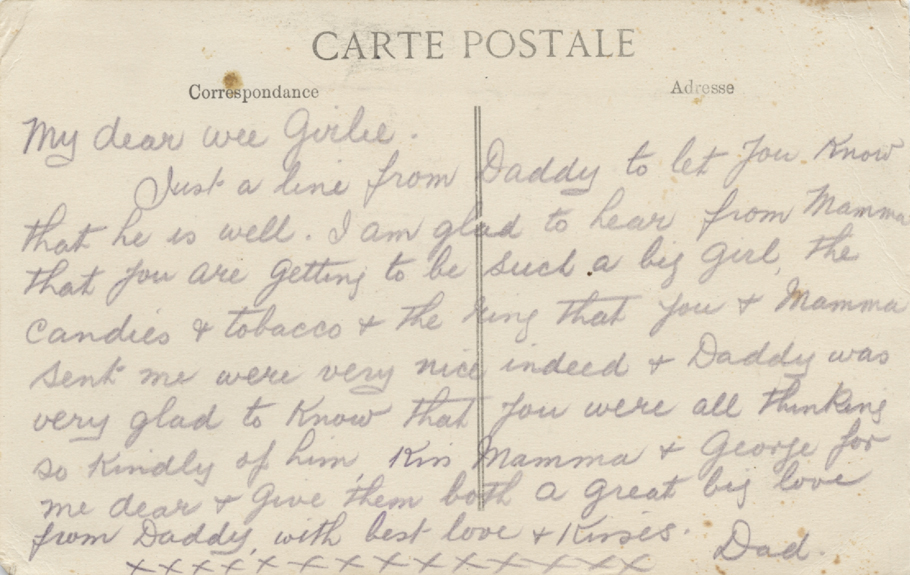 CARTE POSTALE
Correspondance Adresse
My dear wee Girlie.
Just a line from Daddy to let you know
that he is well. I am glad to hear from Mamma
that you are getting to be such a big girl, the
candies & tobacco & the ring that you & Mamma
sent me were very nice indeed & Daddy was
very glad to know that you were all thinking
so kindly of him, Kiss Mamma & George for
me dear & give them both a great big love
from Daddy, with best love & Kisses. Dad.
xxxxxxxxxxxxxxxx